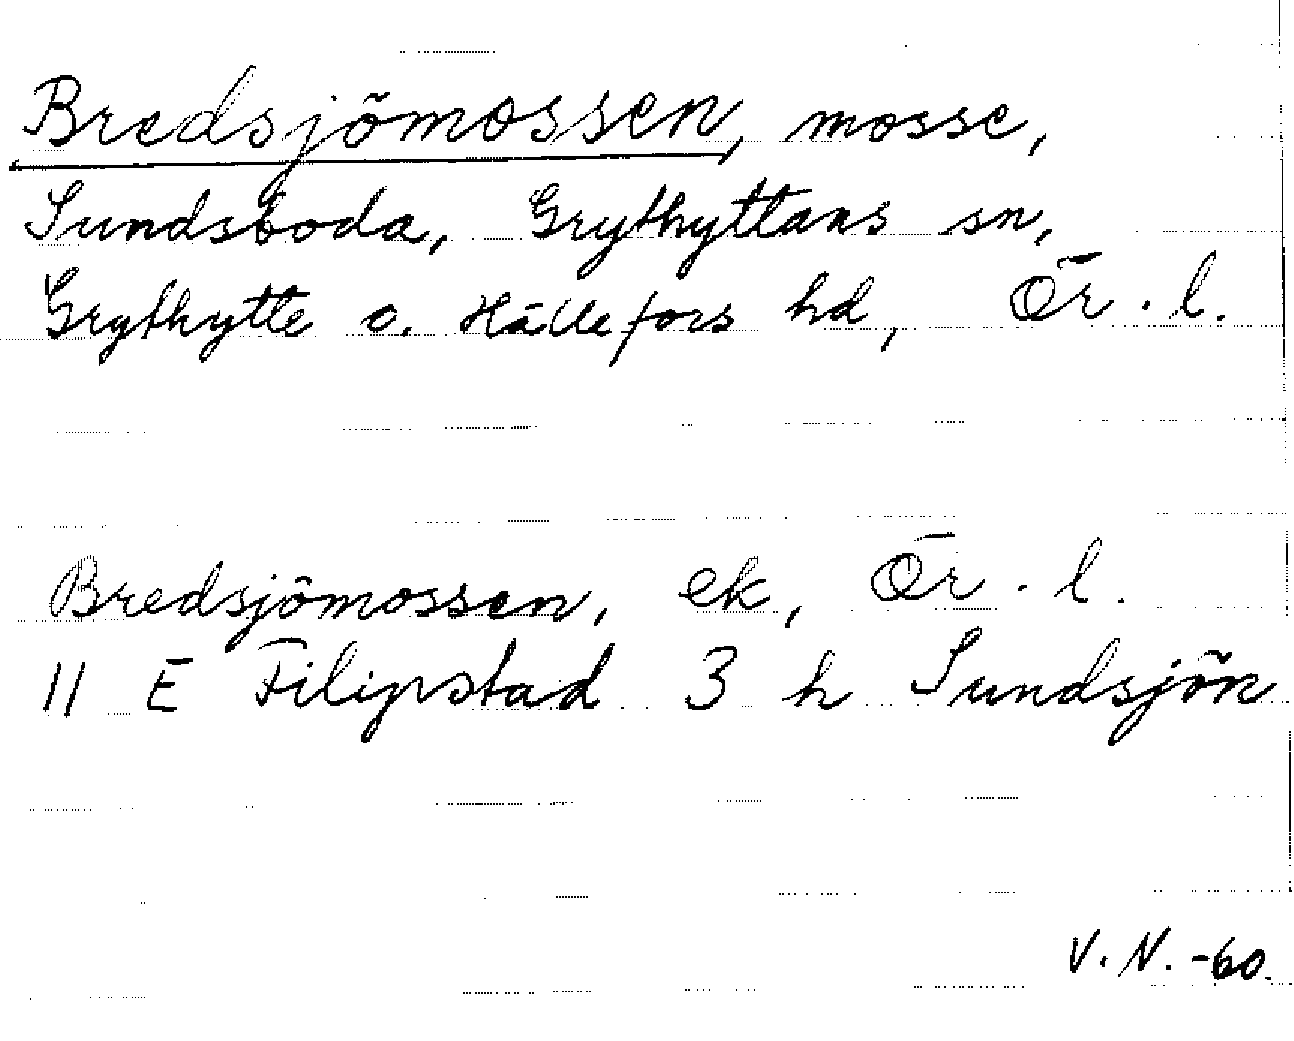 Bredsjömossen, mosse,
Sundsboda, Grythyttans sn,
Grythytte o. Hällefors hd, Ör. l.
Bredsjömossen, ek, Ör. l.
11 E Filipstad 3 h Sundsjön
V. N. -60.